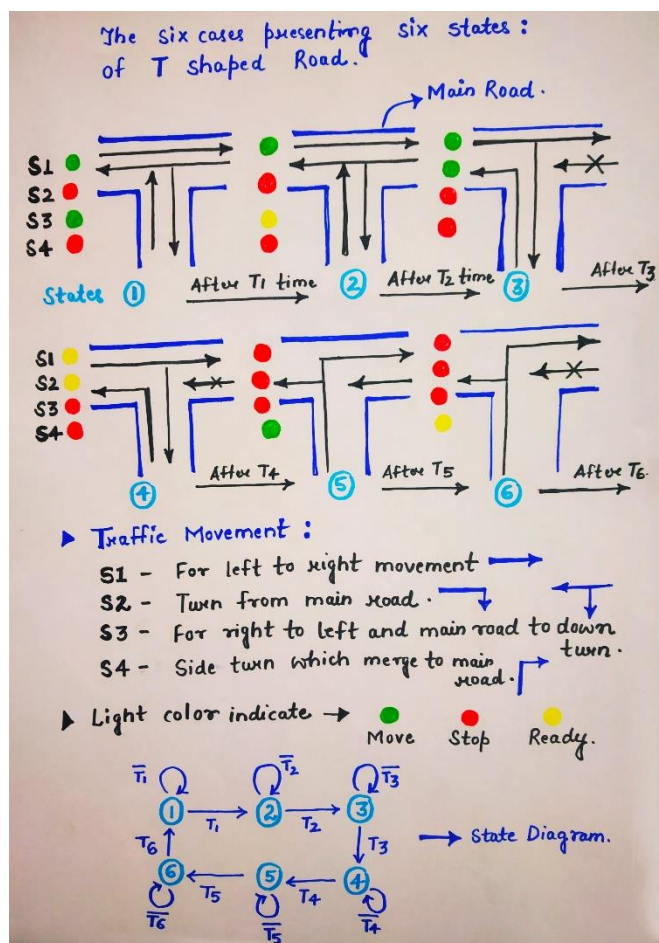 The six cases presenting six states :
of T shaped Road.
Main Road.
S1
S2
S3
S4
States ① After T1 time ② After T2 time ③ After T3
S1
S2
S3
S4
④ After T4 ⑤ After T5 ⑥ After T6.
Traffic Movement :
S1 - For left to right movement
S2 - Turn from main road.
S3 - For right to left and main road to down
turn.
S4 - Side turn which merge to main
road.
Light color indicate → Move Stop Ready.
T̅1 T̅2 T̅3
① T1 ② T2 ③
T6 T3 State Diagram.
⑥ T5 ⑤ T4 ④
T̅6 T̅5 T̅4